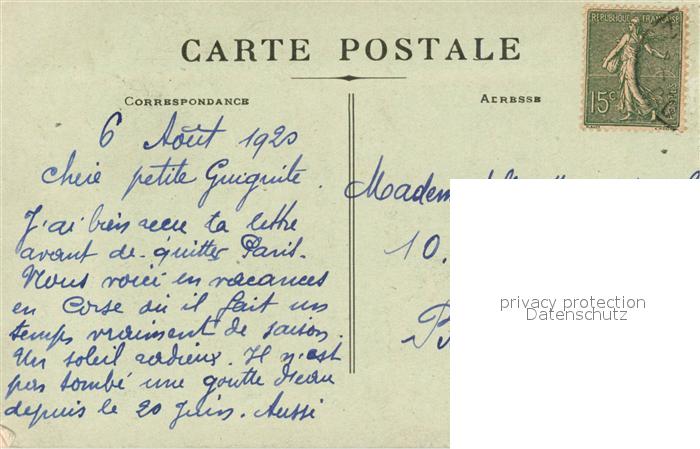 CARTE POSTALE
RÉPUBLIQUE FRANÇAISE
15c
CORRESPONDANCE
ADRESSE
6 Août 1920
Chère petite Guiguite.
J'ai bien reçu ta lettre
avant de quitter Paris.
Nous voici en vacances
en Corse où il fait un
temps vraiment de saison.
Un soleil radieux. Il n'est
pas tombé une goutte d'eau
depuis le 20 Juin. Aussi
Madem
10.
privacy protection
Datenschutz